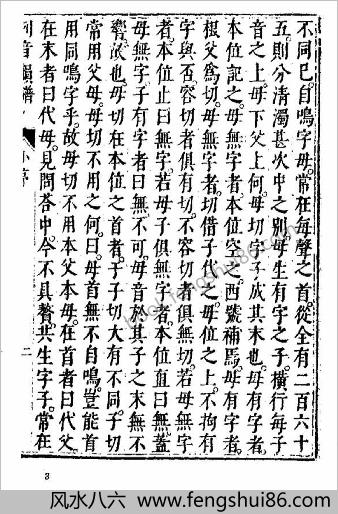 不同已。自鳴字母。常在每聲之首。從全有二百六十
五。則分清濁甚次中之別。母生有字之子。橫行母子
音之上母。下父上何。母切字子成其末也。母有字者。
本位記之。母無字者。本位空。西號補焉。母有字者。
根父爲切。母無字者。切借子代之。母位之上。不拘有
字與否容切者俱有切。不容切者俱無切。若母無字
者。本位止曰無字。若母子俱無字者。本位直曰無。蓋
母無字子有字者曰無不可。母音於其子之末無不
響故也。母切在本位之首者。于子切大有不同。子切
常用父母。母切不用之何。曰。母首無不自鳴。豈能首
用同鳴字乎。故母切不用本父本母。在首者曰代父。
在末者曰代母。見問答中。今不具贅。共生字子。常在
列音韻譜 小序 二
3
风水八六 www.fengshui86.com